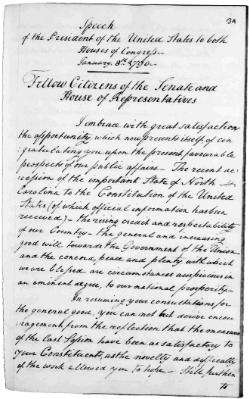 3A
Speech
of the President of the United States to both
Houses of Congress.
January 8th 1790.
Fellow Citizens of the Senate and
House of Representatives
I embrace with great satisfaction
the opportunity, which now presents itself, of con-
gratulating you upon the present favourable
prospects of our public affairs. The recent ac-
cession of the important State of North
Carolina to the Constitution of the United
States (of which official information has been
received)— the rising credit and respectability
of our Country— the general and increasing
good will towards the Government of the Union—
and the concord, peace and plenty, with which
we are blessed are circumstances auspicious in
an eminent degree to our national prosperity—
In resuming your consultations for
the general good, you can not but derive encou-
ragement from the reflection, that the measures
of the last Session have been as satisfactory to
your Constituents, as the novelty and difficulty
of the work allowed you to hope— Still further
to